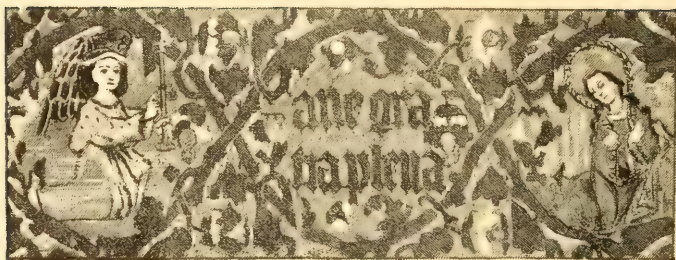 aue gra
tia plena